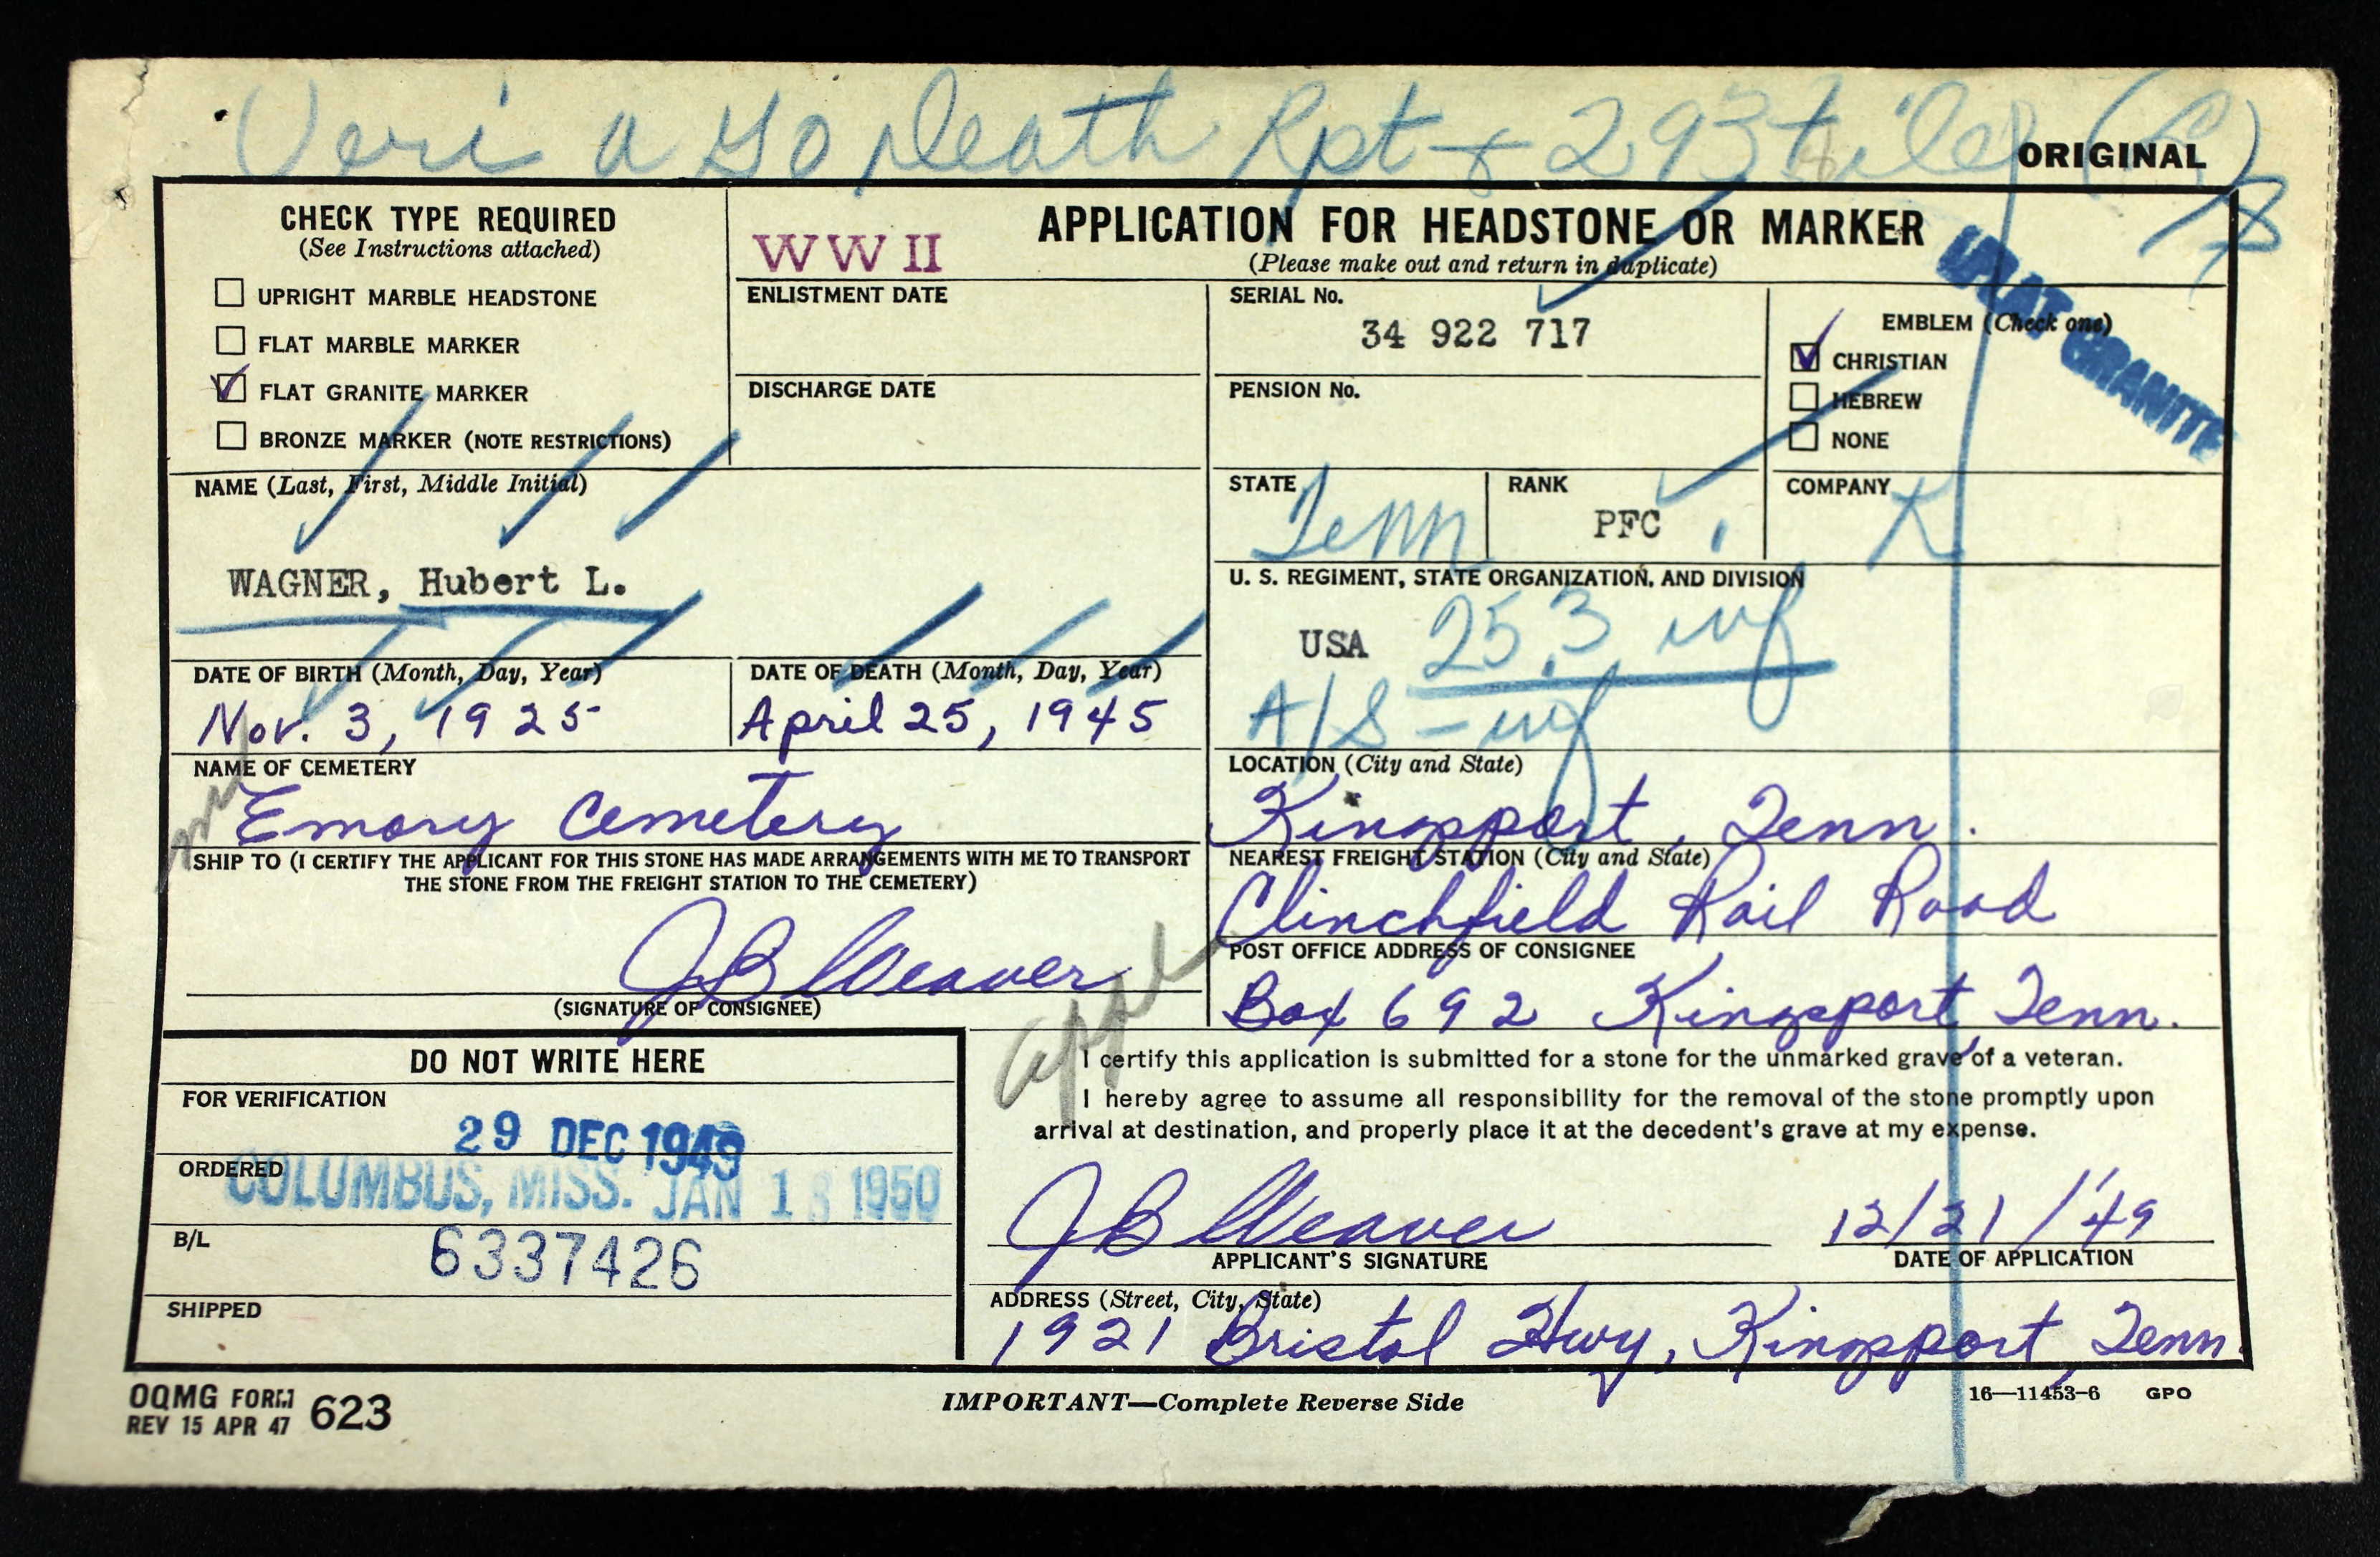 Veri a Go Death Rpt + 293 file
ORIGINAL
CHECK TYPE REQUIRED
(See Instructions attached)
UPRIGHT MARBLE HEADSTONE
FLAT MARBLE MARKER
FLAT GRANITE MARKER
BRONZE MARKER (NOTE RESTRICTIONS)
WW II
ENLISTMENT DATE
DISCHARGE DATE
APPLICATION FOR HEADSTONE OR MARKER
(Please make out and return in duplicate)
SERIAL No.
34 922 717
PENSION No.
EMBLEM (Check one)
CHRISTIAN
HEBREW
NONE
FLAT GRANITE
NAME (Last, First, Middle Initial)
WAGNER, Hubert L.
STATE
Tenn
RANK
PFC
COMPANY
K
U. S. REGIMENT, STATE ORGANIZATION, AND DIVISION
USA 253 inf
A/S - inf
DATE OF BIRTH (Month, Day, Year)
Nov. 3, 1925
DATE OF DEATH (Month, Day, Year)
April 25, 1945
NAME OF CEMETERY
Emory Cemetery
LOCATION (City and State)
Kingsport, Tenn.
SHIP TO (I CERTIFY THE APPLICANT FOR THIS STONE HAS MADE ARRANGEMENTS WITH ME TO TRANSPORT
THE STONE FROM THE FREIGHT STATION TO THE CEMETERY)
JB Weaver
(SIGNATURE OF CONSIGNEE)
NEAREST FREIGHT STATION (City and State)
Clinchfield Rail Road
POST OFFICE ADDRESS OF CONSIGNEE
Box 692 Kingsport, Tenn.
DO NOT WRITE HERE
FOR VERIFICATION
29 DEC 1949
ORDERED
COLUMBUS, MISS. JAN 18 1950
B/L
6337426
SHIPPED
I certify this application is submitted for a stone for the unmarked grave of a veteran.
I hereby agree to assume all responsibility for the removal of the stone promptly upon
arrival at destination, and properly place it at the decedent's grave at my expense.
JB Weaver
APPLICANT'S SIGNATURE
12/21/'49
DATE OF APPLICATION
ADDRESS (Street, City, State)
1921 Bristol Hwy, Kingsport, Tenn.
OQMG FORM
REV 15 APR 47 623
IMPORTANT—Complete Reverse Side
16—11453-6 GPO